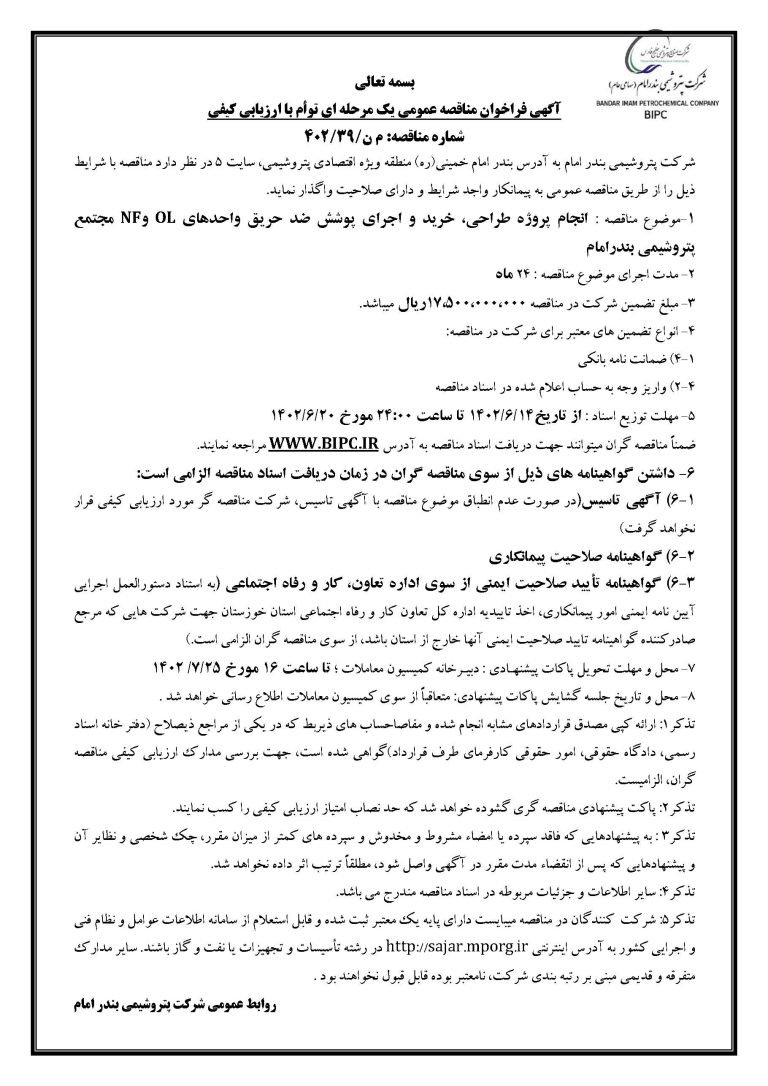 شرکت صنایع پتروشیمی خلیج فارس
شرکت پتروشیمی بندر امام (سهامی عام)
BANDAR IMAM PETROCHEMICAL COMPANY
BIPC
بسمه تعالی
آگهی فراخوان مناقصه عمومی یک مرحله ای توأم با ارزیابی کیفی
شماره مناقصه: م ن/۴۰۲/۳۹
شرکت پتروشیمی بندر امام به آدرس بندر امام خمینی(ره) منطقه ویژه اقتصادی پتروشیمی، سایت ۵ در نظر دارد مناقصه با شرایط
ذیل را از طریق مناقصه عمومی به پیمانکار واجد شرایط و دارای صلاحیت واگذار نماید.
۱-موضوع مناقصه : انجام پروژه طراحی، خرید و اجرای پوشش ضد حریق واحدهای OL وNF مجتمع
پتروشیمی بندرامام
۲- مدت اجرای موضوع مناقصه : ۲۴ ماه
۳- مبلغ تضمین شرکت در مناقصه ۱۷،۵۰۰،۰۰۰،۰۰۰ریال میباشد.
۴- انواع تضمین های معتبر برای شرکت در مناقصه:
۴-۱) ضمانت نامه بانکی
۴-۲) واریز وجه به حساب اعلام شده در اسناد مناقصه
۵- مهلت توزیع اسناد : از تاریخ ۱۴۰۲/۶/۱۴ تا ساعت ۲۴:۰۰ مورخ ۱۴۰۲/۶/۲۰
ضمناً مناقصه گران میتوانند جهت دریافت اسناد مناقصه به آدرس WWW.BIPC.IR مراجعه نمایند.
۶- داشتن گواهینامه های ذیل از سوی مناقصه گران در زمان دریافت اسناد مناقصه الزامی است:
۶-۱) آگهی تاسیس(در صورت عدم انطباق موضوع مناقصه با آگهی تاسیس، شرکت مناقصه گر مورد ارزیابی کیفی قرار
نخواهد گرفت)
۶-۲) گواهینامه صلاحیت پیمانکاری
۶-۳) گواهینامه تأیید صلاحیت ایمنی از سوی اداره تعاون، کار و رفاه اجتماعی (به استناد دستورالعمل اجرایی
آیین نامه ایمنی امور پیمانکاری، اخذ تاییدیه اداره کل تعاون کار و رفاه اجتماعی استان خوزستان جهت شرکت هایی که مرجع
صادرکننده گواهینامه تایید صلاحیت ایمنی آنها خارج از استان باشد، از سوی مناقصه گران الزامی است.)
۷- محل و مهلت تحویل پاکات پیشنهادی : دبیرخانه کمیسیون معاملات ؛ تا ساعت ۱۶ مورخ ۱۴۰۲/۷/۲۵
۸- محل و تاریخ جلسه گشایش پاکات پیشنهادی: متعاقباً از سوی کمیسیون معاملات اطلاع رسانی خواهد شد .
تذکر۱: ارائه کپی مصدق قراردادهای مشابه انجام شده و مفاصاحساب های ذیربط که در یکی از مراجع ذیصلاح (دفتر خانه اسناد
رسمی، دادگاه حقوقی، امور حقوقی کارفرمای طرف قرارداد)گواهی شده است، جهت بررسی مدارک ارزیابی کیفی مناقصه
گران، الزامیست.
تذکر۲: پاکت پیشنهادی مناقصه گری گشوده خواهد شد که حد نصاب امتیاز ارزیابی کیفی را کسب نمایند.
تذکر۳ : به پیشنهادهایی که فاقد سپرده یا امضاء مشروط و مخدوش و سپرده های کمتر از میزان مقرر، چک شخصی و نظایر آن
و پیشنهادهایی که پس از انقضاء مدت مقرر در آگهی واصل شود، مطلقاً ترتیب اثر داده نخواهد شد.
تذکر۴: سایر اطلاعات و جزئیات مربوطه در اسناد مناقصه مندرج می باشد.
تذکر۵: شرکت کنندگان در مناقصه میبایست دارای پایه یک معتبر ثبت شده و قابل استعلام از سامانه اطلاعات عوامل و نظام فنی
و اجرایی کشور به آدرس اینترنتی http://sajar.mporg.ir در رشته تأسیسات و تجهیزات یا نفت و گاز باشند. سایر مدارک
متفرقه و قدیمی مبنی بر رتبه بندی شرکت، نامعتبر بوده قابل قبول نخواهند بود .
روابط عمومی شرکت پتروشیمی بندر امام